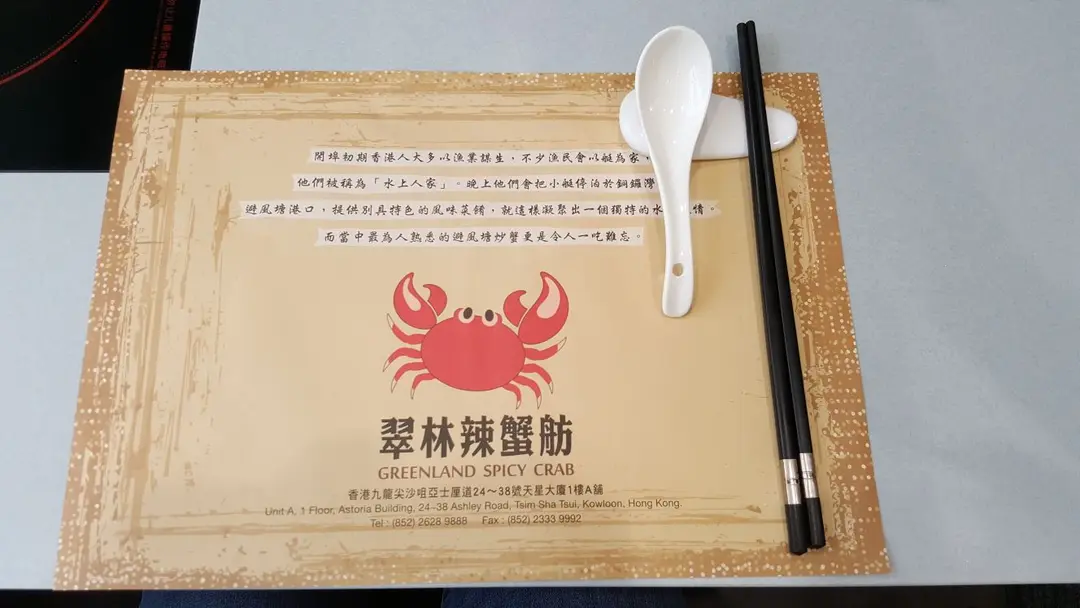 開埠初期香港人大多以漁業謀生，不少漁民會以艇為家，
他們被稱為「水上人家」。晚上他們會把小艇停泊於銅鑼灣
避風塘港口，提供別具特色的風味菜餚，就這樣凝聚出一個獨特的水 情。
而當中最為人熟悉的避風塘炒蟹更是令人一吃難忘。
翠林辣蟹舫
GREENLAND SPICY CRAB
香港九龍尖沙咀亞士厘道24～38號天星大廈1樓A舖
Unit A, 1 Floor, Astoria Building, 24-38 Ashley Road, Tsim Sha Tsui, Kowloon, Hong Kong.
Tel : (852) 2628 9888 Fax : (852) 2333 9992